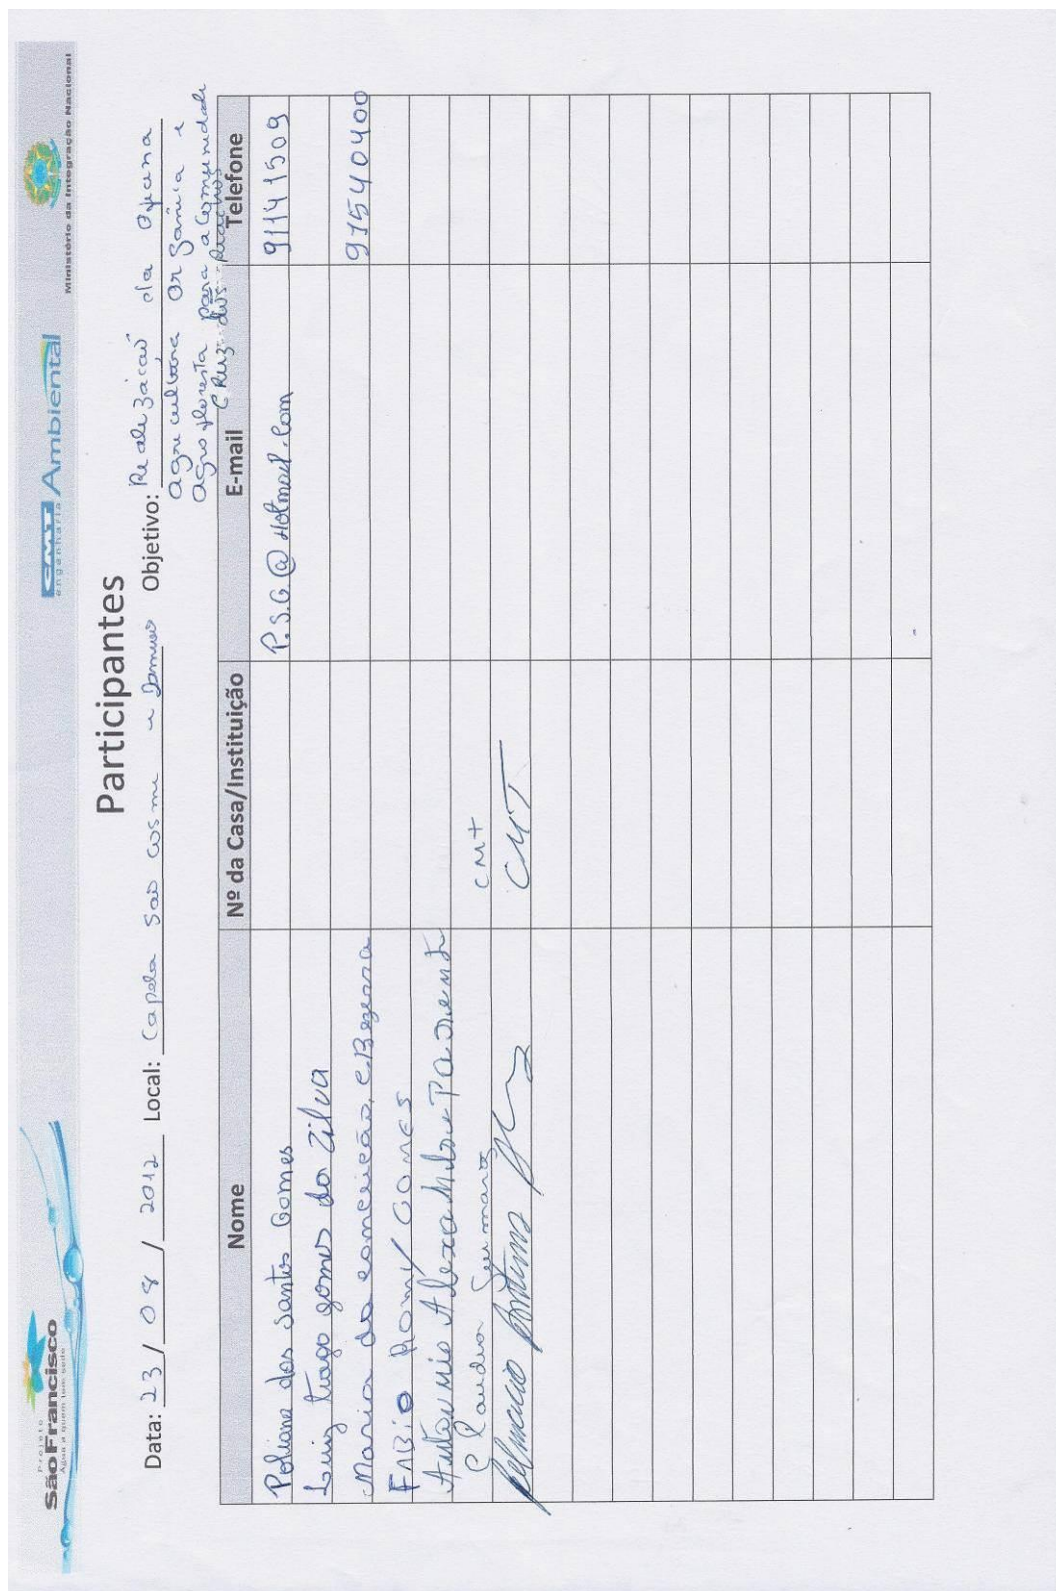 Projeto
São Francisco
Água a quem tem sede
CMT Ambiental
engenharia
Ministério da Integração Nacional
Participantes
Data: 23/08/2012 Local: Capela São Cosme e Objetivo: Realização da
agricultura orgânica e
agrofloresta para a comunidade
Cruz dos Riachos
Nome Nº da Casa/Instituição E-mail Telefone
Poliana dos Santos Gomes P.S.G.@Hotmail.com 91141509
Luiz tiago gomes da Silva
Maria da conceição, C Bezerra 91540400
FABIO RAMY GOMES
CMT
CMT